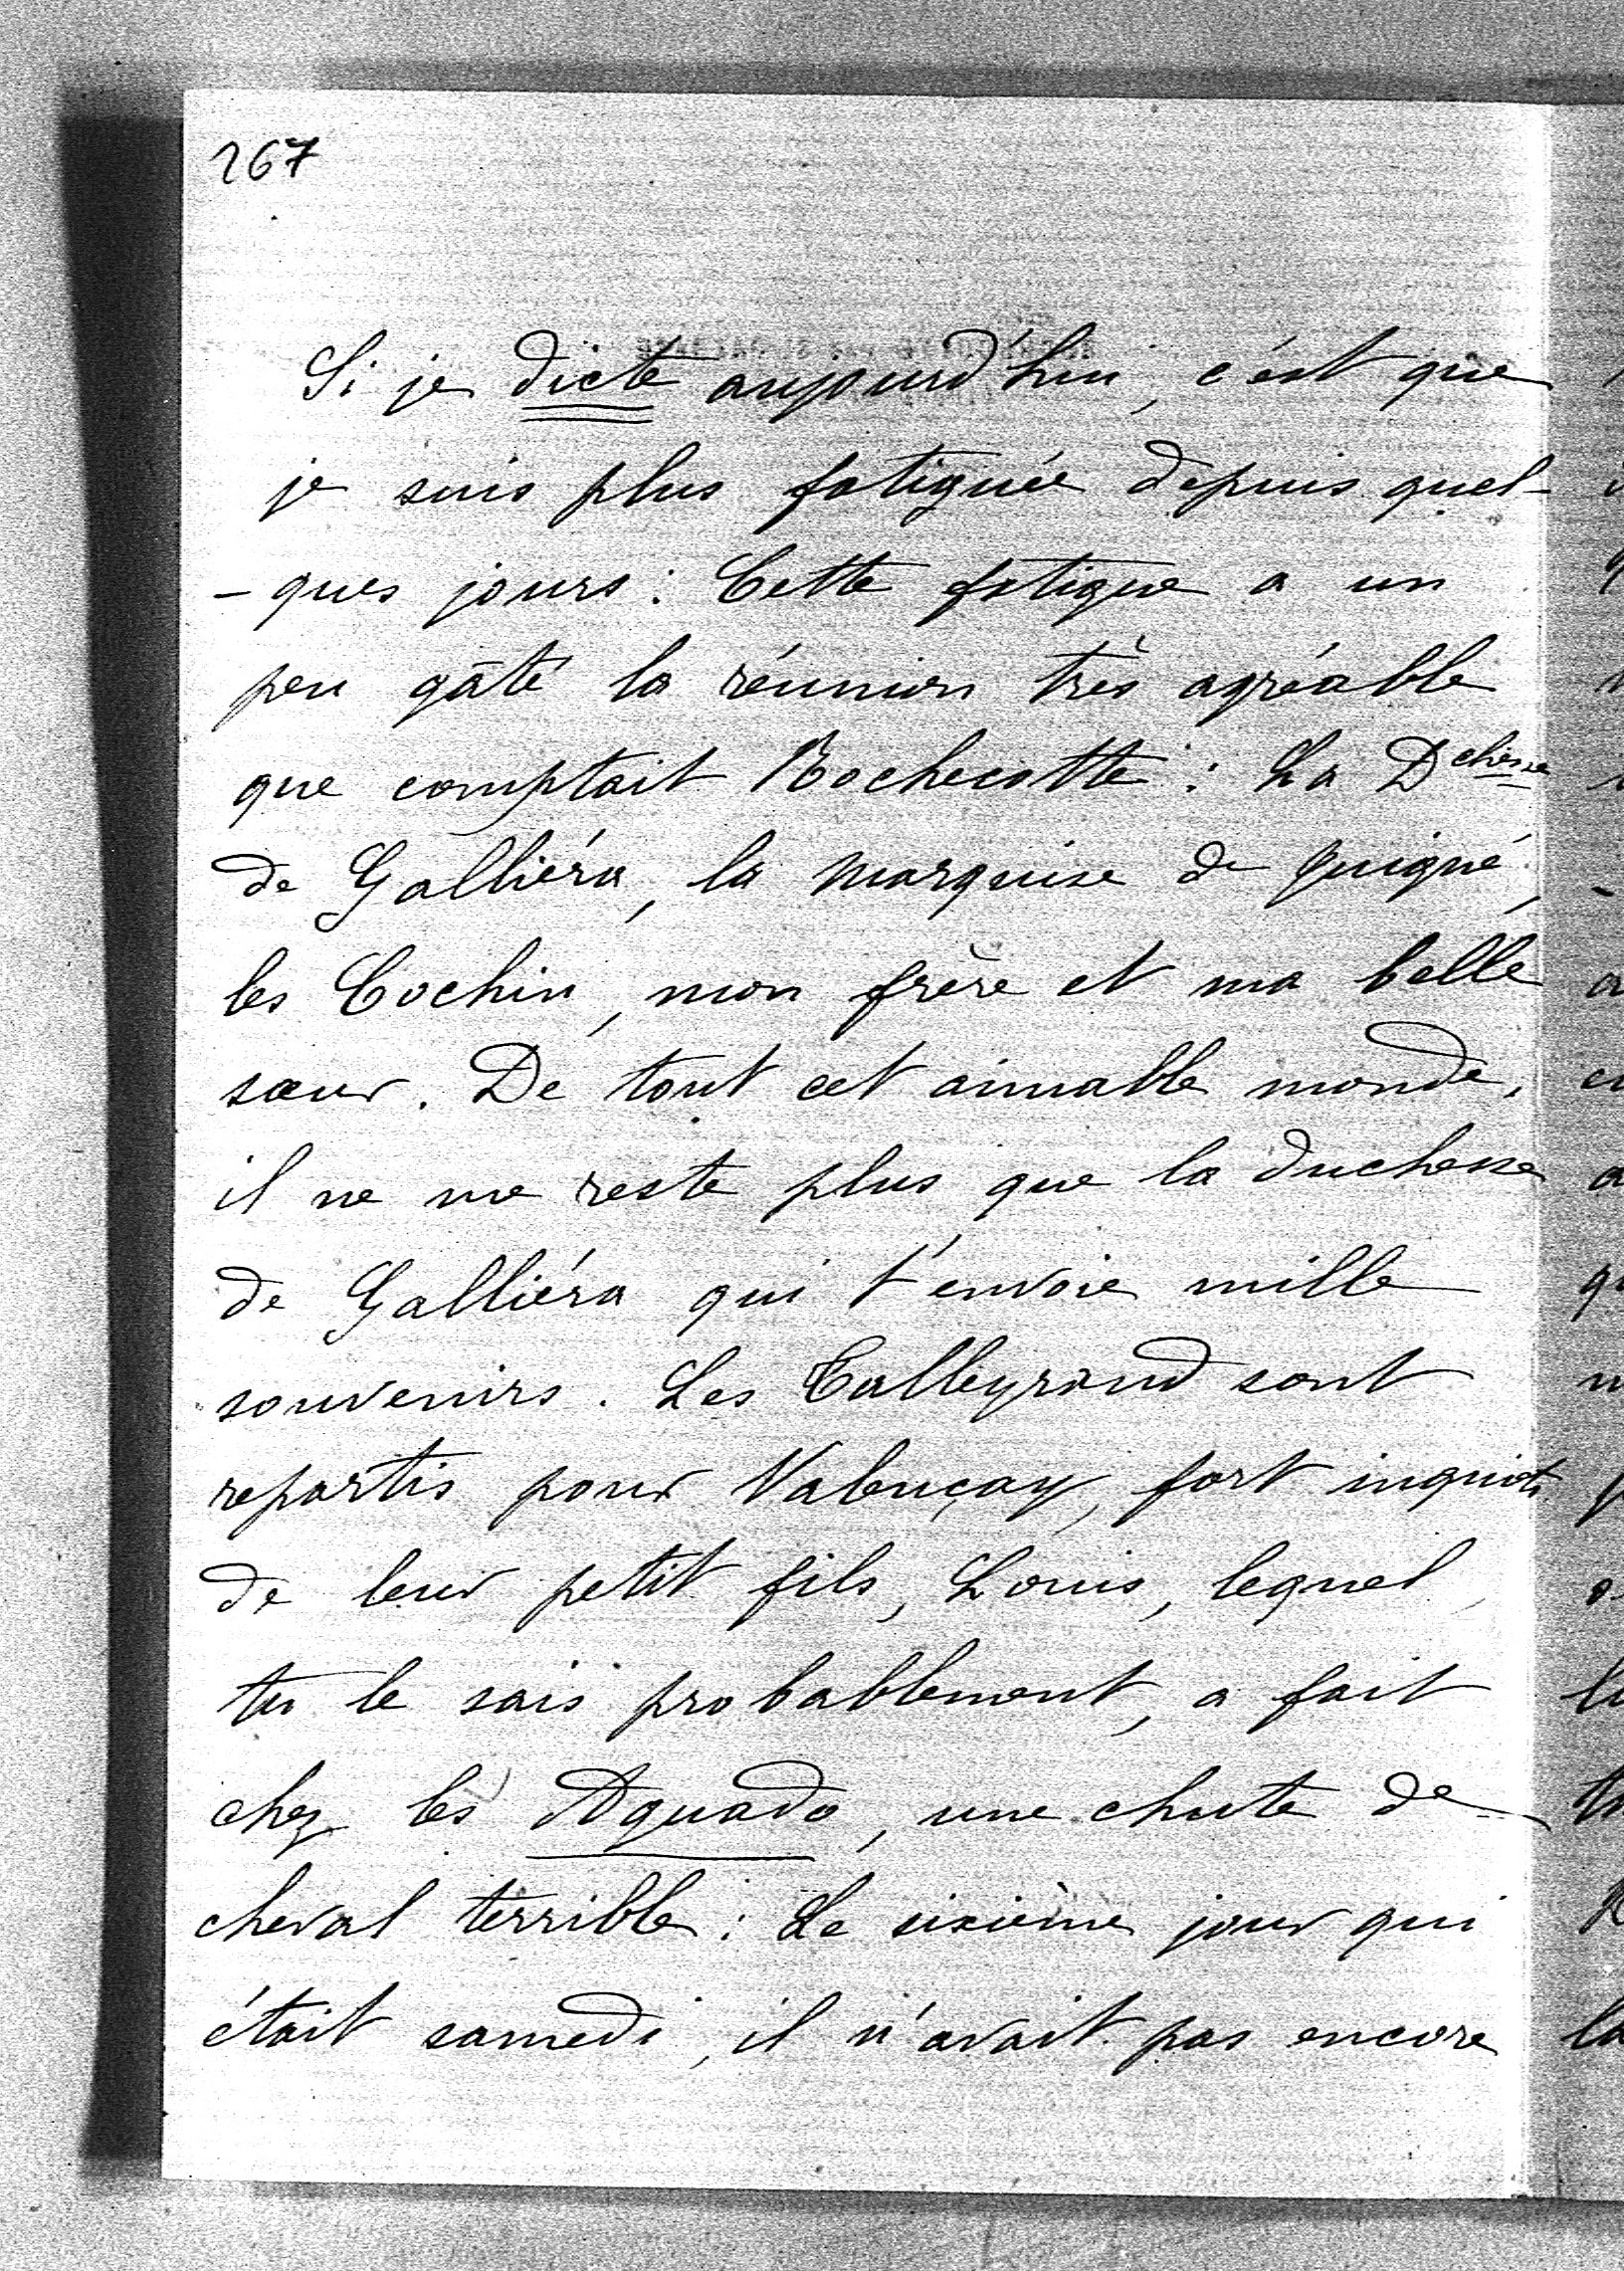 267
Si je dicte aujourd'hui, c'est que
je suis plus fatiguée depuis quel-
-ques jours : Cette fatigue a un
peu gâté la réunion très agréable
que comptait Rochecotte : La Dchesse
de Galliéra, la marquise de Juigné,
les Cochin, mon frère et ma belle
sœur. De tout cet aimable monde,
il ne me reste plus que la duchesse
de Galliéra qui t'envoie mille
souvenirs. Les Talleyrand sont
repartis pour Valençay, fort inquiets
de leur petit fils, Louis, lequel,
tu le sais probablement, a fait
chez les Aguado, une chute de
cheval terrible : Le sixième jour qui
était samedi, il n'avait pas encore